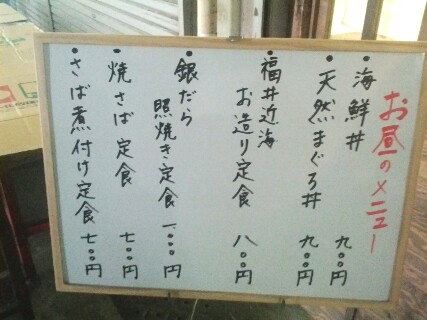 お昼のメニュー
・海鮮丼 九〇〇円
・天然まぐろ丼 九〇〇円
・福井近海
お造り定食 八〇〇円
・銀だら
照焼き定食 一、〇〇〇円
・焼さば定食 七〇〇円
・さば煮付け定食 七〇〇円